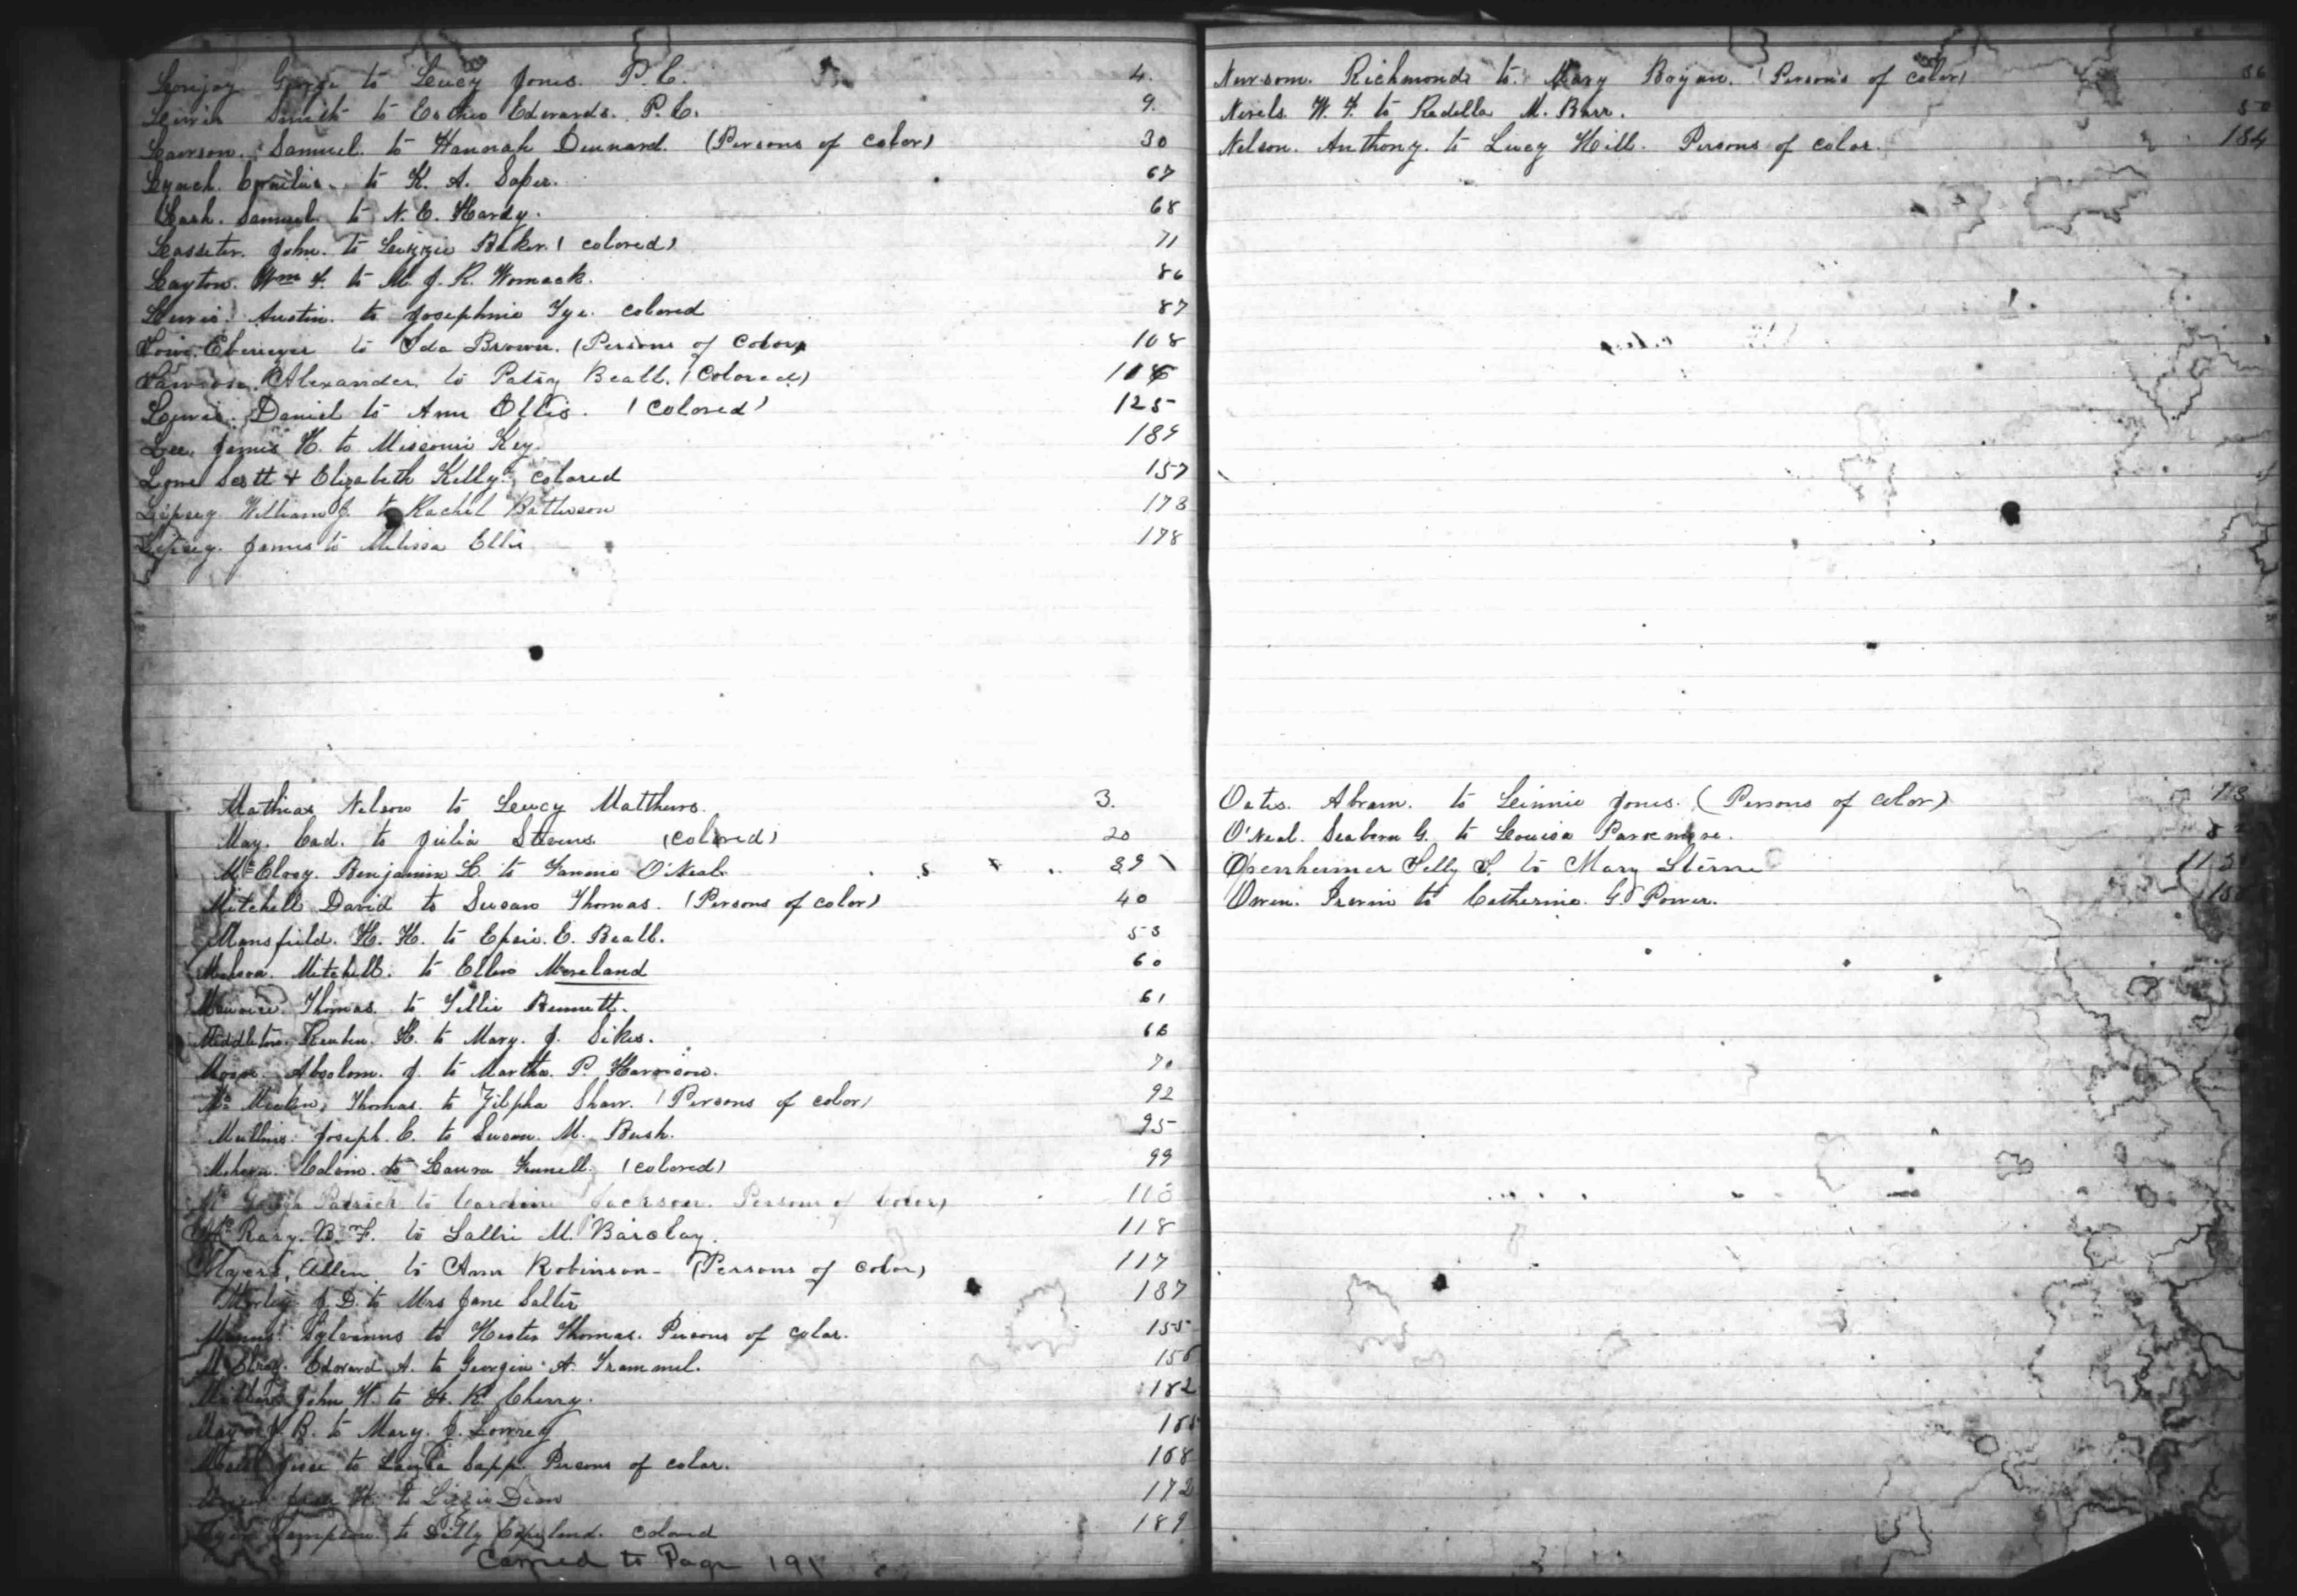 Lovejoy George to Leucy Jones. P. C. 4.
Lewis Smith to Esther Edwards. P. C. 9.
Lawson. Samuel. to Hannah Dennard. (Persons of Color) 30
Lynch. to K. A. Soper. 67
Cash. Samuel. to N. E. Hardy. 68
Lasseter. John. to Leizzie Baker. (colored) 71
Layton. Wm F. to M. J. R. Womack. 86
Lewis. Austin. to Josephine Tye. colored 87
Love. Ebenezer to Ida Brown. (Persons of Color) 108
Lawson. Alexander, to Patsy Beall. (Colored)
Lewis. Daniel to Ann Ellis. (Colored) 125
Lee. James H. to Missouri Key. 139
Lyne Scott & Elizabeth Kelly. Colored 157
Lipsey William J. to Rachel Batterson 173
Lipsey. James to Melissa Ellis 178
Mathias Nelson to Leucy Matthews. 3.
May. Cad. to Julia Stevens. (Colored) 20
McElroy. Benjamin L. to Fannie O'Neal. 39
Mitchell David to Susan Thomas. (Persons of color) 40
Mansfield. H. H. to Epsie. E. Beall. 53
Mitchell. to Ellen Moreland 60
Thomas. to Tillie Bennett. 61
Middleton. Reuben. H. to Mary. J. Sikes. 66
Absolom. J. to Martha. P. Harrison. 70
Thomas. to Zilpha Shaw. (Persons of color) 92
Mullins. Joseph. C. to Susan. M. Bush. 95
Calvin. to Laura Fennell. (colored) 99
Patrick to Caroline Jackson. Persons of Color) 113
McRary. B. F. to Sallie M. Barclay. 118
Myers, Allen, to Ann Robinson - (Persons of Color) 117
Morley J. D. to Mrs Jane Salter 137
Sylvanus to Hester Thomas. Persons of color. 155
McElroy. Edward A. to Georgia A. Trammel. 156
John W. to H. K. Cherry. 182
J. B. to Mary. J. Lowrey
Jesse to Sapp. Persons of color. 168
H. to Lizzie Dean 172
to Dilly Copeland. Colored 189
Carried to Page 191
Newsom. Richmond. to. Mary Bryan. (Persons of color) 36
Nevels. W. F. to Radella M. Barr. 50
Nelson. Anthony. to Lucy Hill. Persons of color. 184
Oates. Abram. to Leinnie Jones. (Persons of color)
O'Neal. Seaborn G. to Louisa Parkmore.
Openheimer Selly S. to Mary Sterne
Owen. Irwin to Catherine. G. Power.